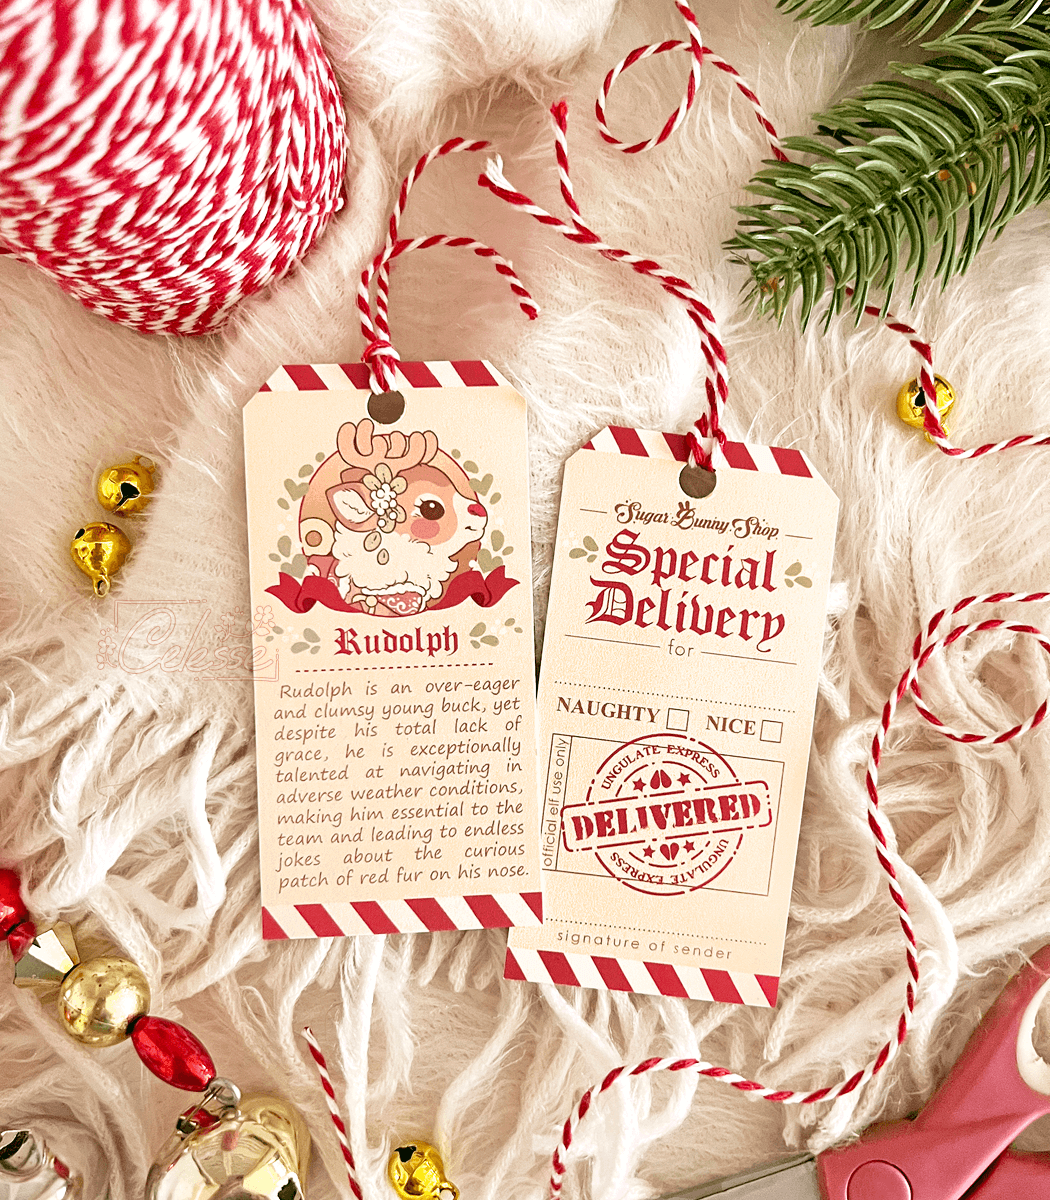 Rudolph
Rudolph is an over-eager
and clumsy young buck, yet
despite his total lack of
grace, he is exceptionally
talented at navigating in
adverse weather conditions,
making him essential to the
team and leading to endless
jokes about the curious
patch of red fur on his nose.
Sugar Bunny Shop
Special
Delivery
for
NAUGHTY NICE
official elf use only
UNGULATE EXPRESS
DELIVERED
UNGULATE EXPRESS
signature of sender
Celesse